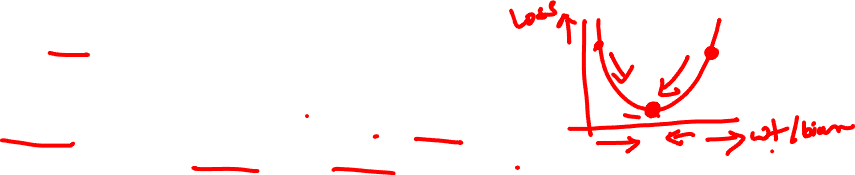 Loss
wt/bias